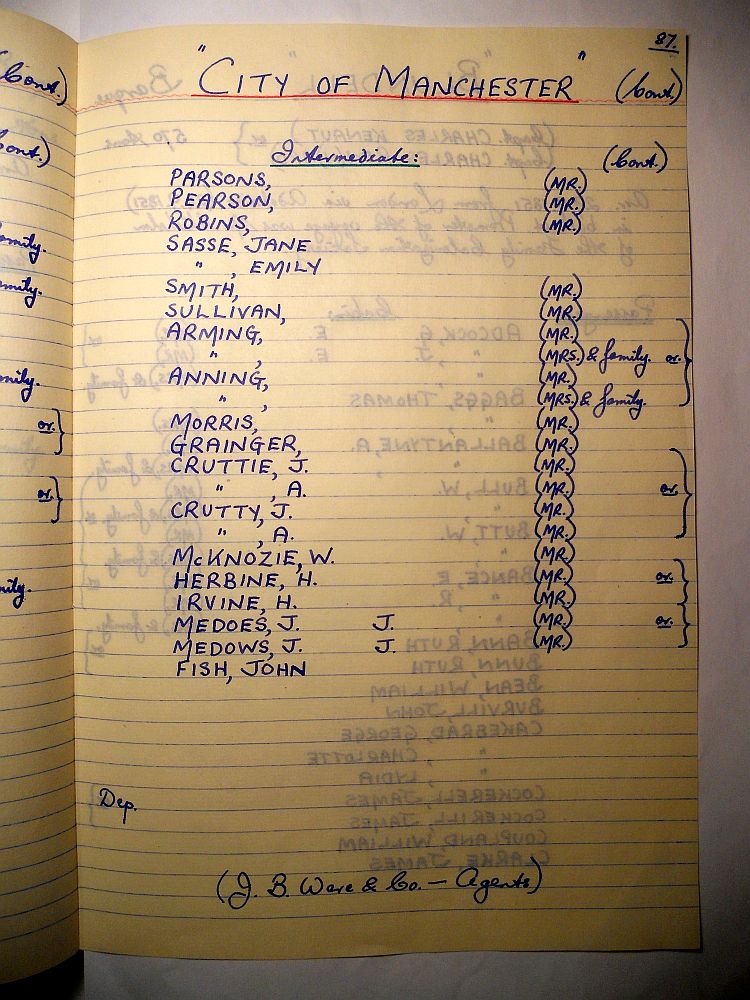 87.
"CITY OF MANCHESTER" (Cont.)
Intermediate: (Cont.)
PARSONS, (MR.)
PEARSON, (MR.)
ROBINS, (MR.)
SASSE, JANE
" , EMILY
SMITH, (MR.)
SULLIVAN, (MR.)
ARMING, (MR.)
" , (MRS.) & family. or.
ANNING, (MR.)
" , (MRS.) & family.
MORRIS, (MR.)
GRAINGER, (MR.)
CRUTTIE, J. (MR.)
" , A. (MR.) or.
CRUTTY, J. (MR.)
" , A. (MR.)
McKNOZIE, W. (MR.)
HERBINE, H. (MR.) or.
IRVINE, H. (MR.)
MEDOES, J. J. (MR.) or.
MEDOWS, J. J. (MR.)
FISH, JOHN
Dep.
(J. B. Ware & Co. — Agents)
Cont.)
Cont.)
family.
family.
family.
or.
or.